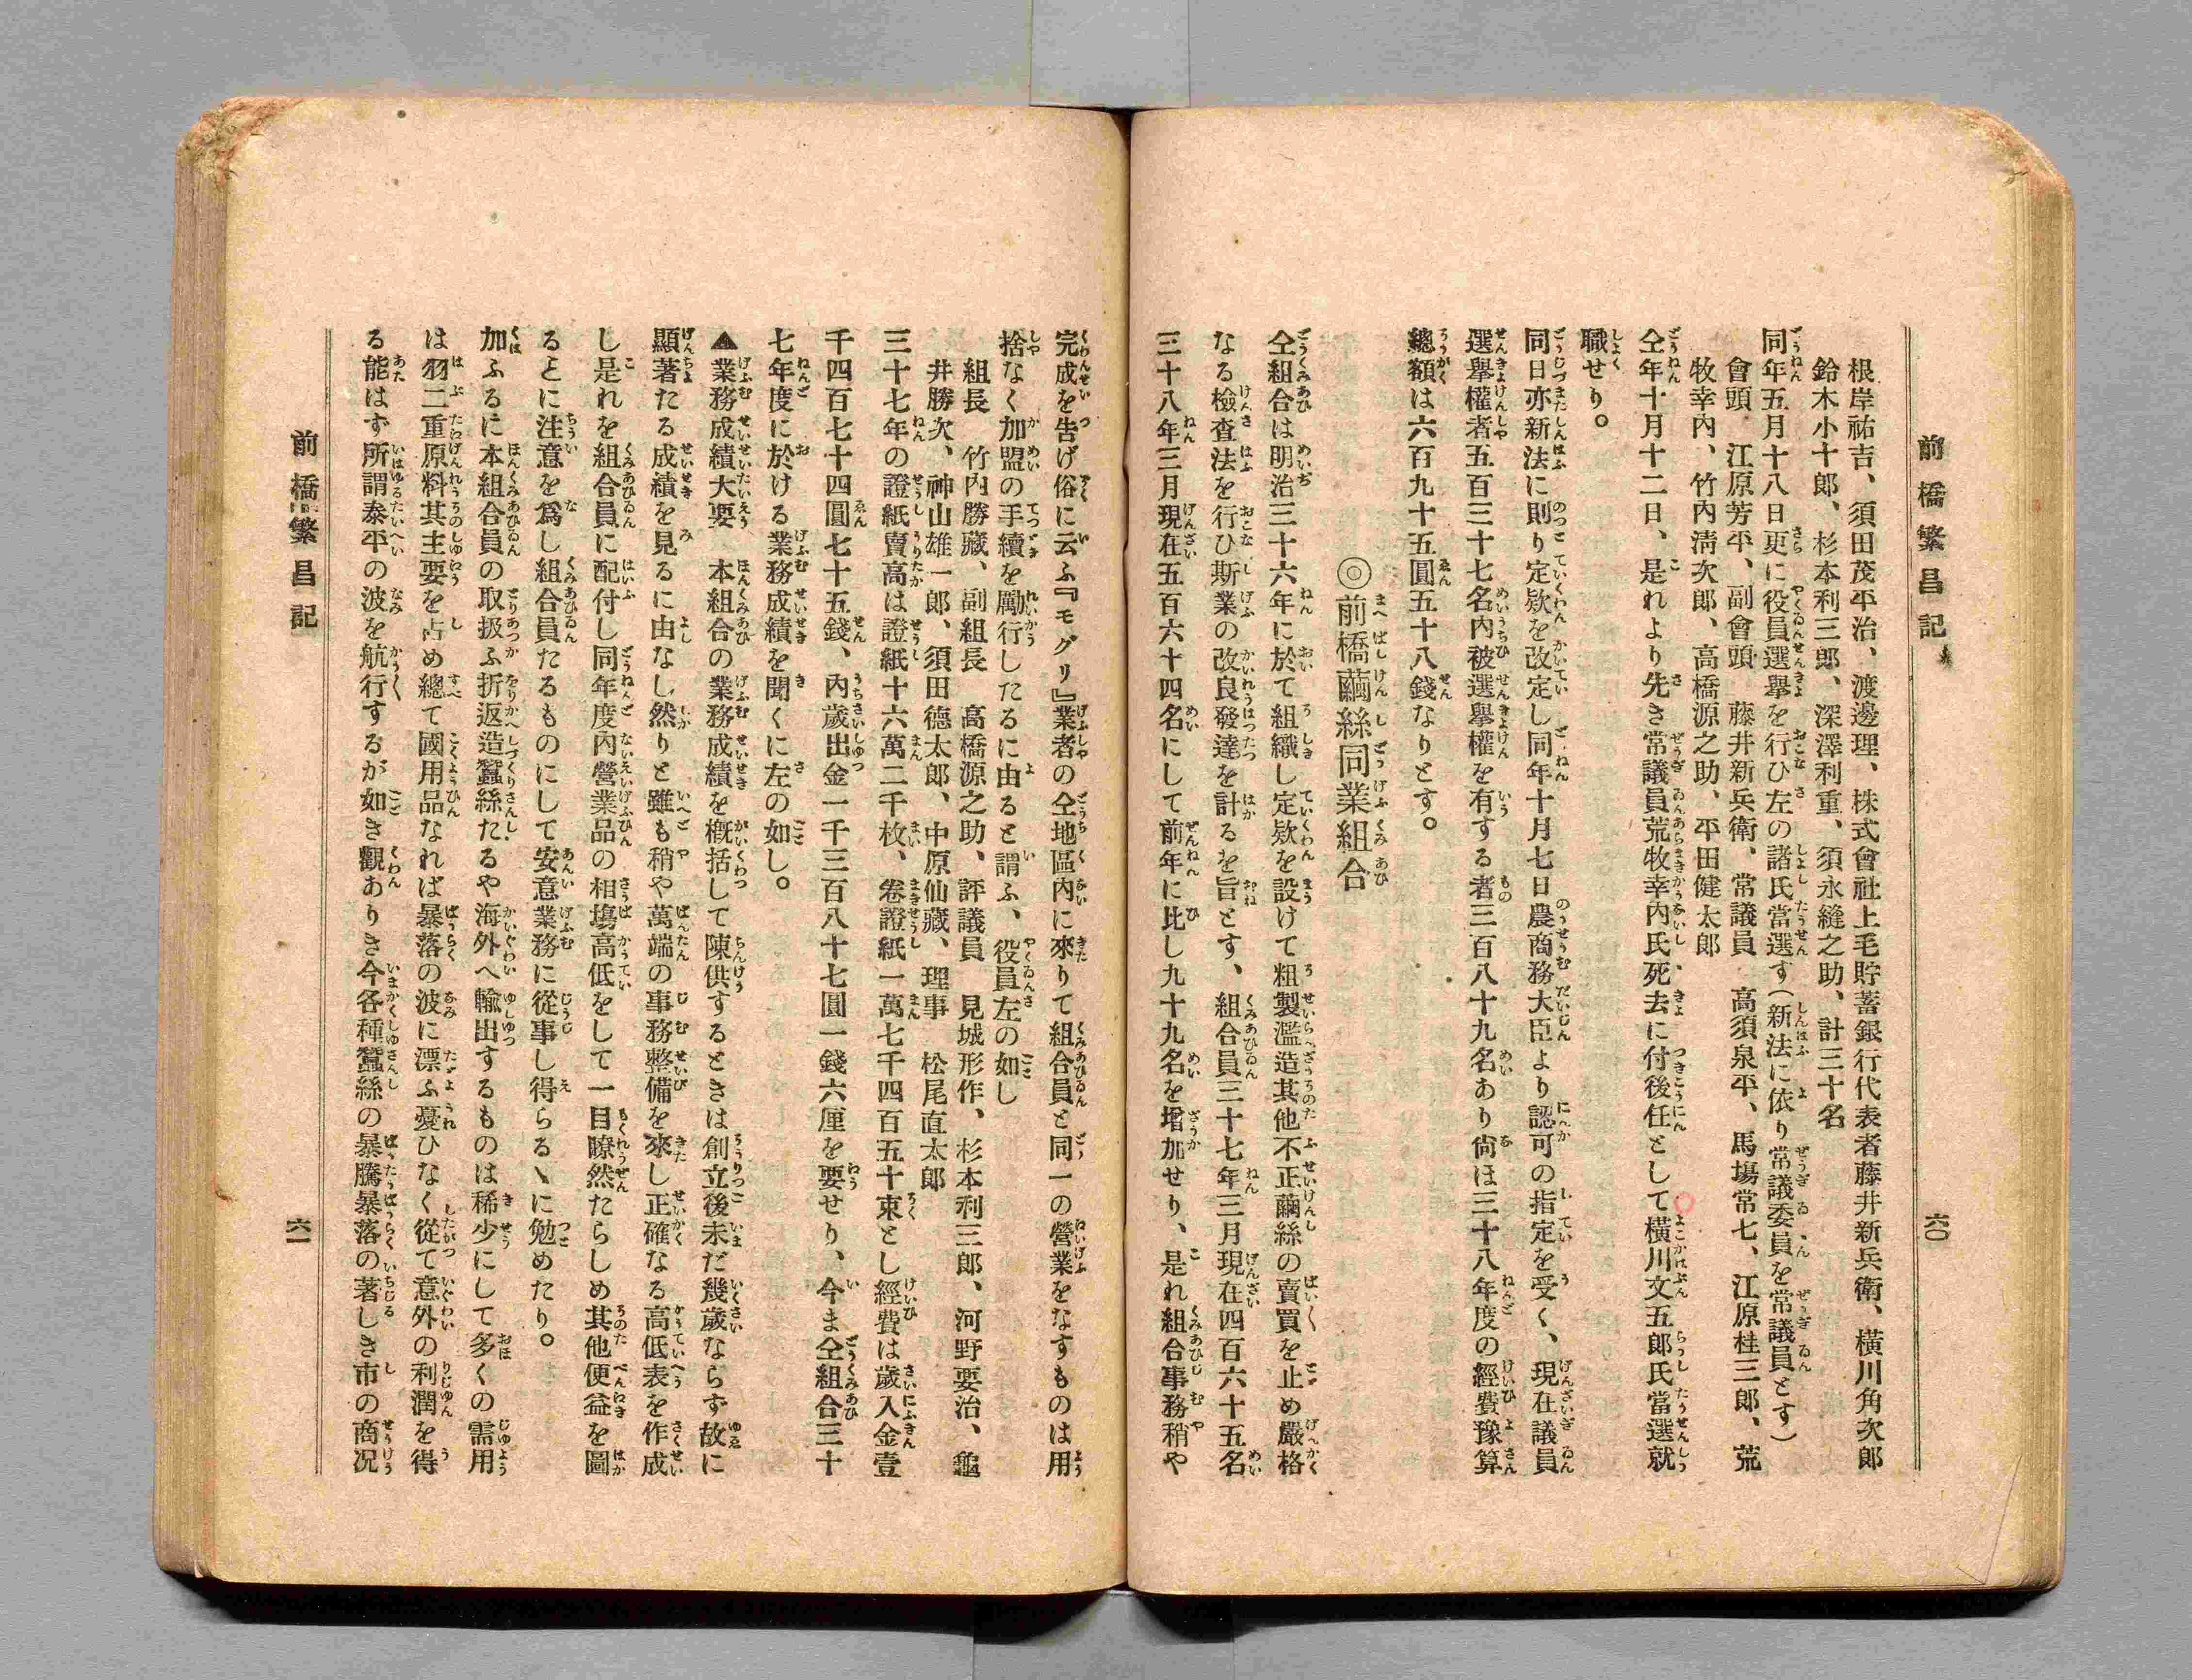 前橋繁昌記
六〇
根岸祐吉、須田茂平治、渡邊理、株式會社上毛貯蓄銀行代表者藤井新兵衛、橫川角次郎
鈴木小十郎、杉本利三郎、深澤利重、須永縫之助、計三十名
同年五月十八日更に役員選擧を行ひ左の諸氏當選す（新法に依り常議委員を常議員とす）
會頭　江原芳平、副會頭　藤井新兵衛、常議員　高須泉平、馬塲常七、江原桂三郎、荒
牧幸內、竹內淸次郎、高橋源之助、平田健太郎
仝年十月十二日、是れより先き常議員荒牧幸內氏死去に付後任として橫川文五郎氏當選就
職せり。
同日亦新法に則り定欵を改定し同年十月七日農商務大臣より認可の指定を受く、現在議員
選擧權者五百三十七名內被選擧權を有する者三百八十九名あり尙ほ三十八年度の經費豫算
總額は六百九十五圓五十八錢なりとす。
◎前橋繭絲同業組合
仝組合は明治三十六年に於て組織し定欵を設けて粗製濫造其他不正繭絲の賣買を止め嚴格
なる檢查法を行ひ斯業の改良發達を計るを旨とす、組合員三十七年三月現在四百六十五名
三十八年三月現在五百六十四名にして前年に比し九十九名を增加せり、是れ組合事務稍や
完成を吿げ俗に云ふ『モグリ』業者の仝地區內に來りて組合員と同一の營業をなすものは用
捨なく加盟の手續を勵行したるに由ると謂ふ、役員左の如し
組長　竹內勝藏、副組長　高橋源之助、評議員　見城形作、杉本利三郎、河野要治、龜
井勝次、神山雄一郎、須田德太郎、中原仙藏、理事　松尾直太郎
三十七年の證紙賣高は證紙十六萬二千枚、卷證紙一萬七千四百五十束とし經費は歲入金壹
千四百七十四圓七十五錢、內歲出金一千三百八十七圓一錢六厘を要せり、今ま仝組合三十
七年度に於ける業務成績を聞くに左の如し。
▲業務成績大要　本組合の業務成績を槪括して陳供するときは創立後未だ幾歲ならず故に
顯著たる成績を見るに由なし然りと雖も稍や萬端の事務整備を來し正確なる高低表を作成
し是れを組合員に配付し同年度內營業品の相塲高低をして一目瞭然たらしめ其他便益を圖
るとに注意を爲し組合員たるものにして安意業務に從事し得らるゝに勉めたり。
加ふるに本組合員の取扱ふ折返造蠶絲たるや海外へ輸出するものは稀少にして多くの需用
は羽二重原料其主要を占め總て國用品なれば暴落の波に漂ふ憂ひなく從て意外の利潤を得
る能はず所謂泰平の波を航行するが如き觀ありき今各種蠶絲の暴騰暴落の著しき市の商况
前橋繁昌記
六一